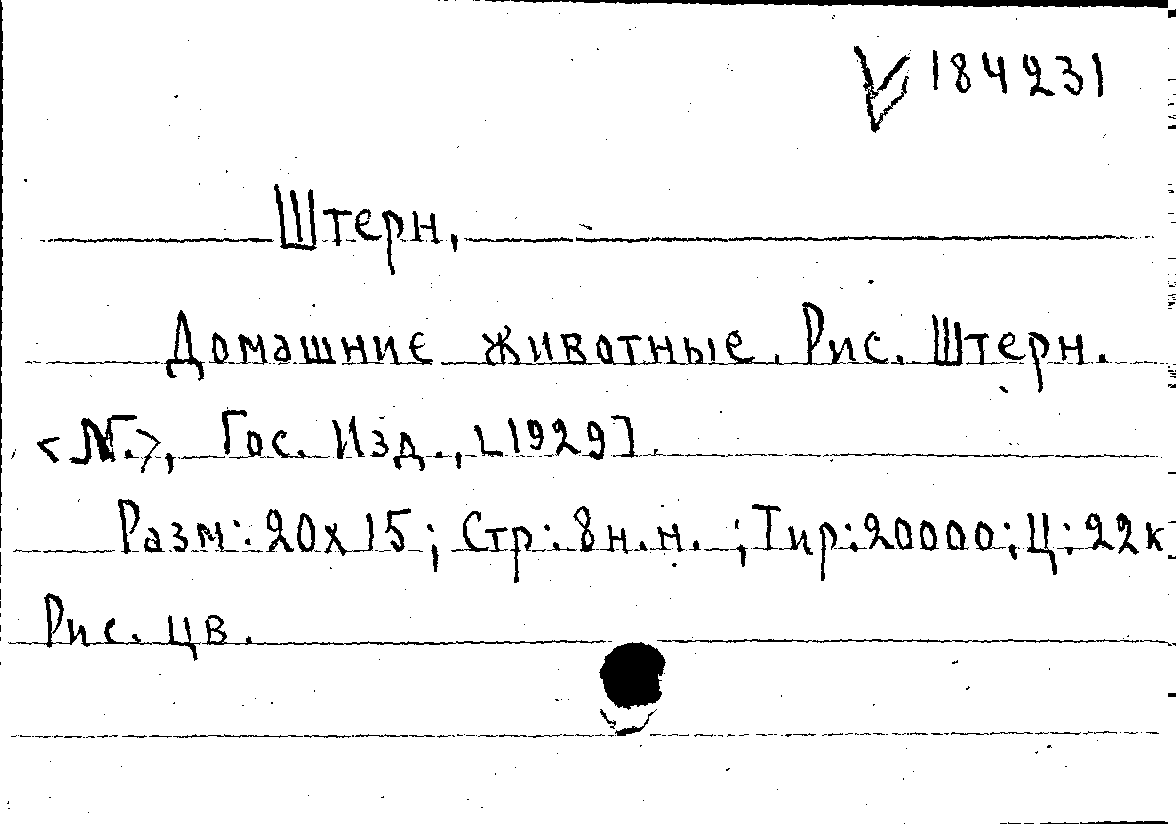 V 184231
Штерн,
Домашние животные. Рис. Штерн.
<М.>, Гос. Изд., [1929].
Разм: 20х15; Стр: 8 н.н. ; Тир: 20000; Ц: 22к
Рис. цв.